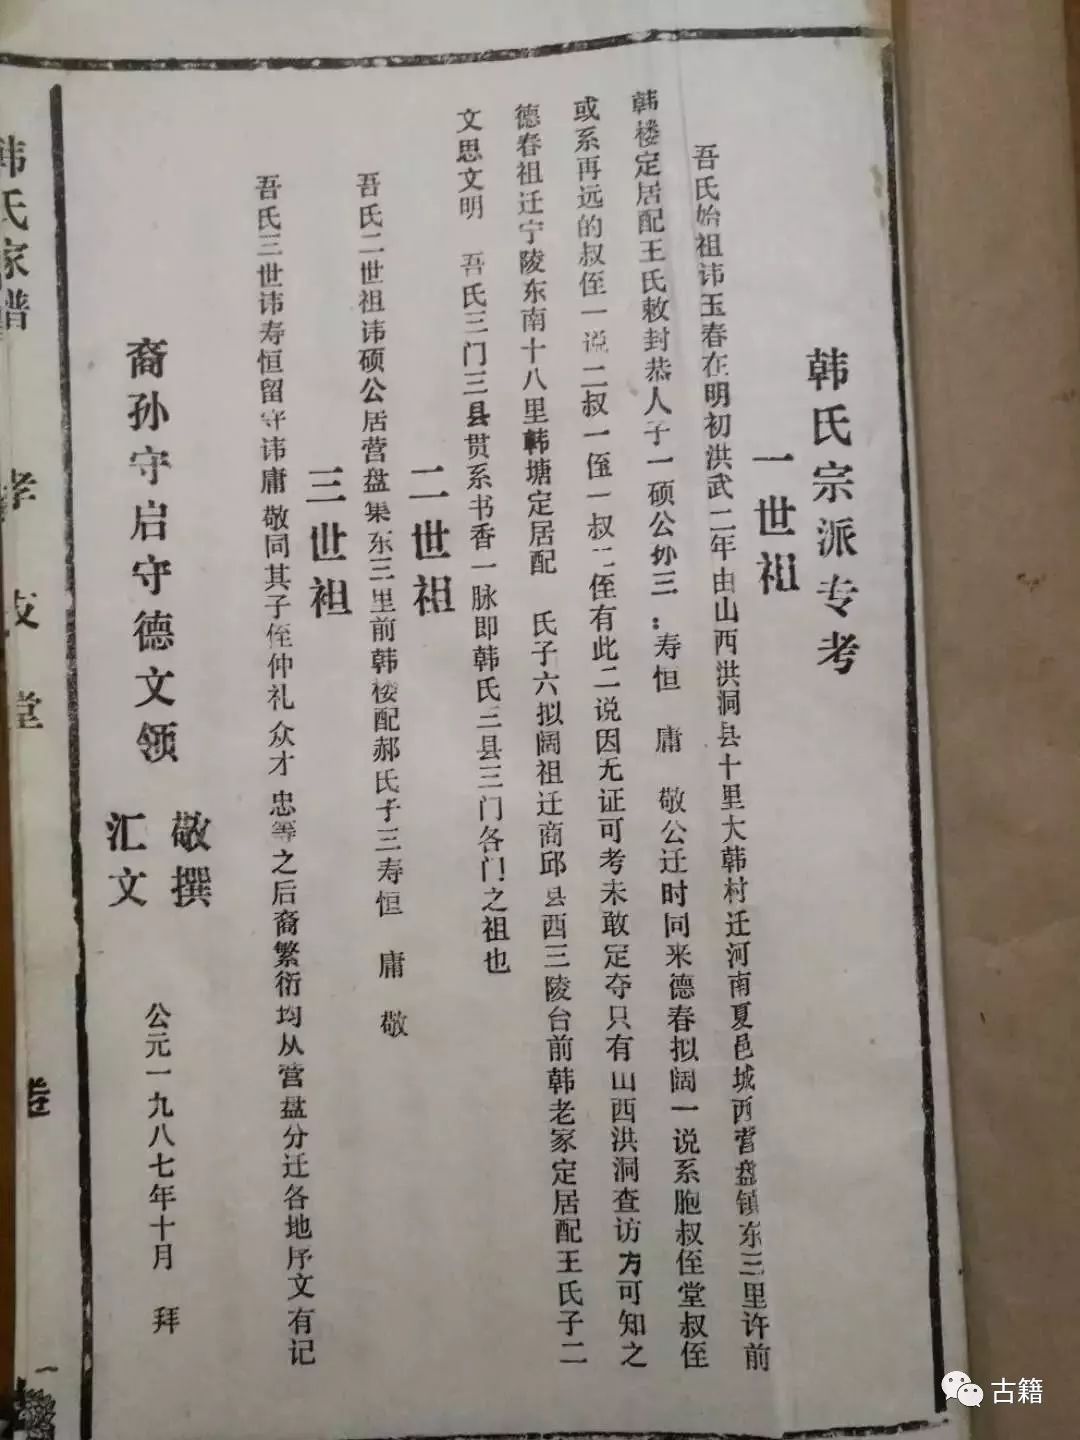 韩氏宗派专考
一世祖
吾氏始祖讳玉春在明初洪武二年由山西洪洞县十里大韩村迁河南夏邑城西营盘镇东三里许前
韩楼定居配王氏敕封恭人子一硕公孙三：寿恒 庸 敬公迁时同来德春拟阔一说系胞叔侄堂叔侄
或系再远的叔侄一说二叔一侄一叔二侄有此二说因无证可考未敢定夺只有山西洪洞查访方可知之
德春祖迁宁陵东南十八里韩塘定居配 氏子六拟阔祖迁商邱县西三陵台前韩老家定居配王氏子二
文思文明 吾氏三门三县贯系书香一脉即韩氏三县三门各门之祖也
二世祖
吾氏二世祖讳硕公居营盘集东三里前韩楼配郝氏子三寿恒 庸 敬
三世祖
吾氏三世讳寿恒留守讳庸敬同其子侄仲礼众才忠等之后裔繁衍均从营盘分迁各地序文有记
裔孙守启守德文领 敬撰
汇文
公元一九八七年十月 拜
韩氏家谱
孝友堂
卷
一
古籍